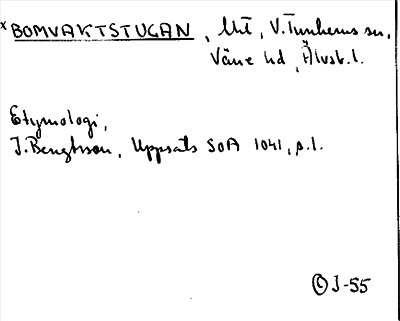 x BOMVAKTSTUGAN, Utt, V.Tunhems sn,
Väne hd, Älvsb.l.
Etymologi,
J.Bengtsson, Uppsats SOA 1041, s.1.
© J-55